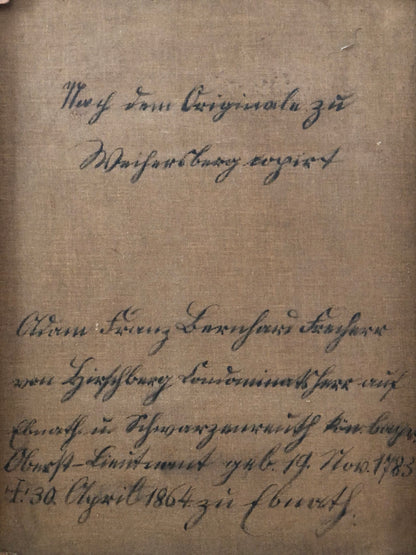 Nach dem Originale zu
Weihersberg copirt
Adam Franz Bernhard Freiherr
von Hirschberg Condominatsherr auf
Ebnath u Schwarzenreuth kön. bayr.
Oberst-Lieutnant geb. 19. Nov. 1783
†: 30. April 1864 zu Ebnath.